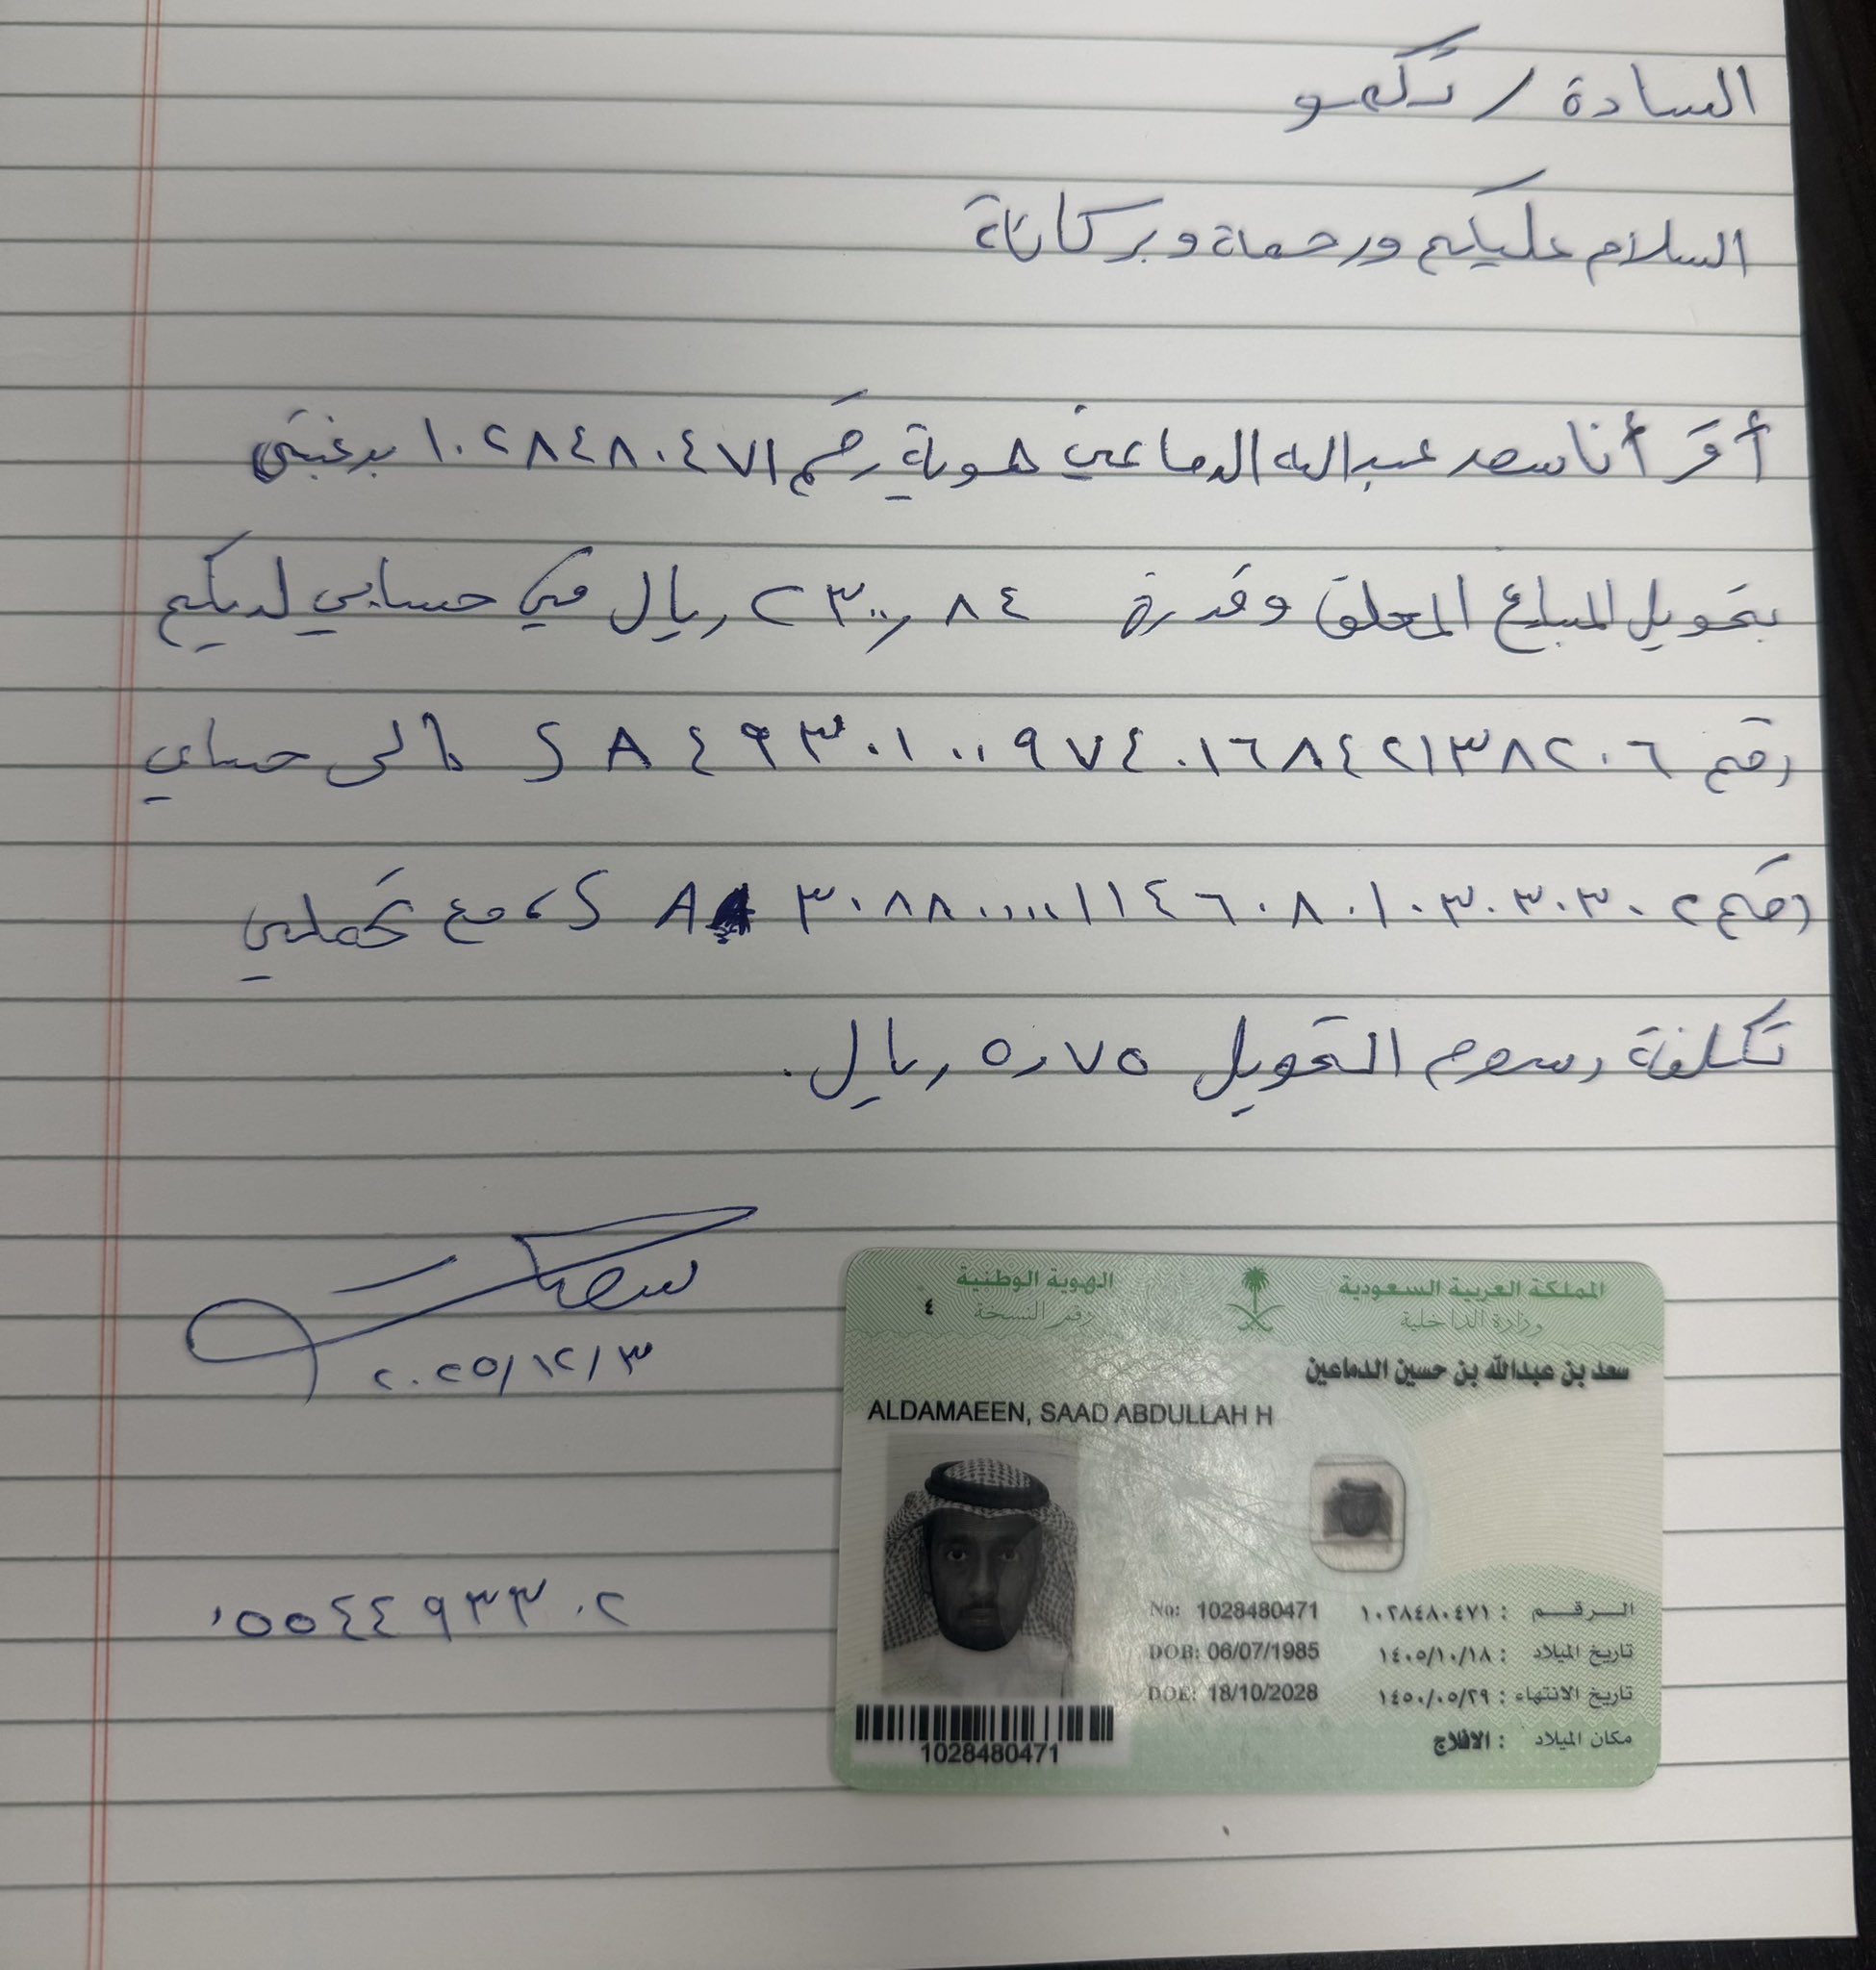 السادة / تكمو
السلام عليكم ورحمة وبركاتة
أقر أنا سعد عبدالله الدماعين هوية رقم ١٠٢٨٤٨٠٤٧١ برغبتي
بتحويل المبلغ المعلق وقدرة ٢٣٠٠,٨٤ ريال في حسابي لديكم
رقم SA٤٩٣٠١٠٠٠٩٧٤٠١٦٨٤٢١٣٨٢٠٦ إلى حسابي
رقم SA٣٠٨٨٠٠٠٠٠١١٤٦٠٨٠١٠٣٠٣٠٣٠٢، مع تحملي
تكلفة رسوم التحويل ٥,٧٥ ريال.
سعد
٢٠٢٥/١٢/٣
٠٥٥٤٤٩٣٣٠٢
المملكة العربية السعودية الهوية الوطنية
وزارة الداخلية رقم النسخة ٤
سعد بن عبدالله بن حسين الدماعين
ALDAMAEEN, SAAD ABDULLAH H
الرقم : ١٠٢٨٤٨٠٤٧١ No: 1028480471
تاريخ الميلاد : ١٤٠٥/١٠/١٨ DOB: 06/07/1985
تاريخ الانتهاء : ١٤٥٠/٠٥/٢٩ DOE: 18/10/2028
مكان الميلاد : الافلاج
1028480471